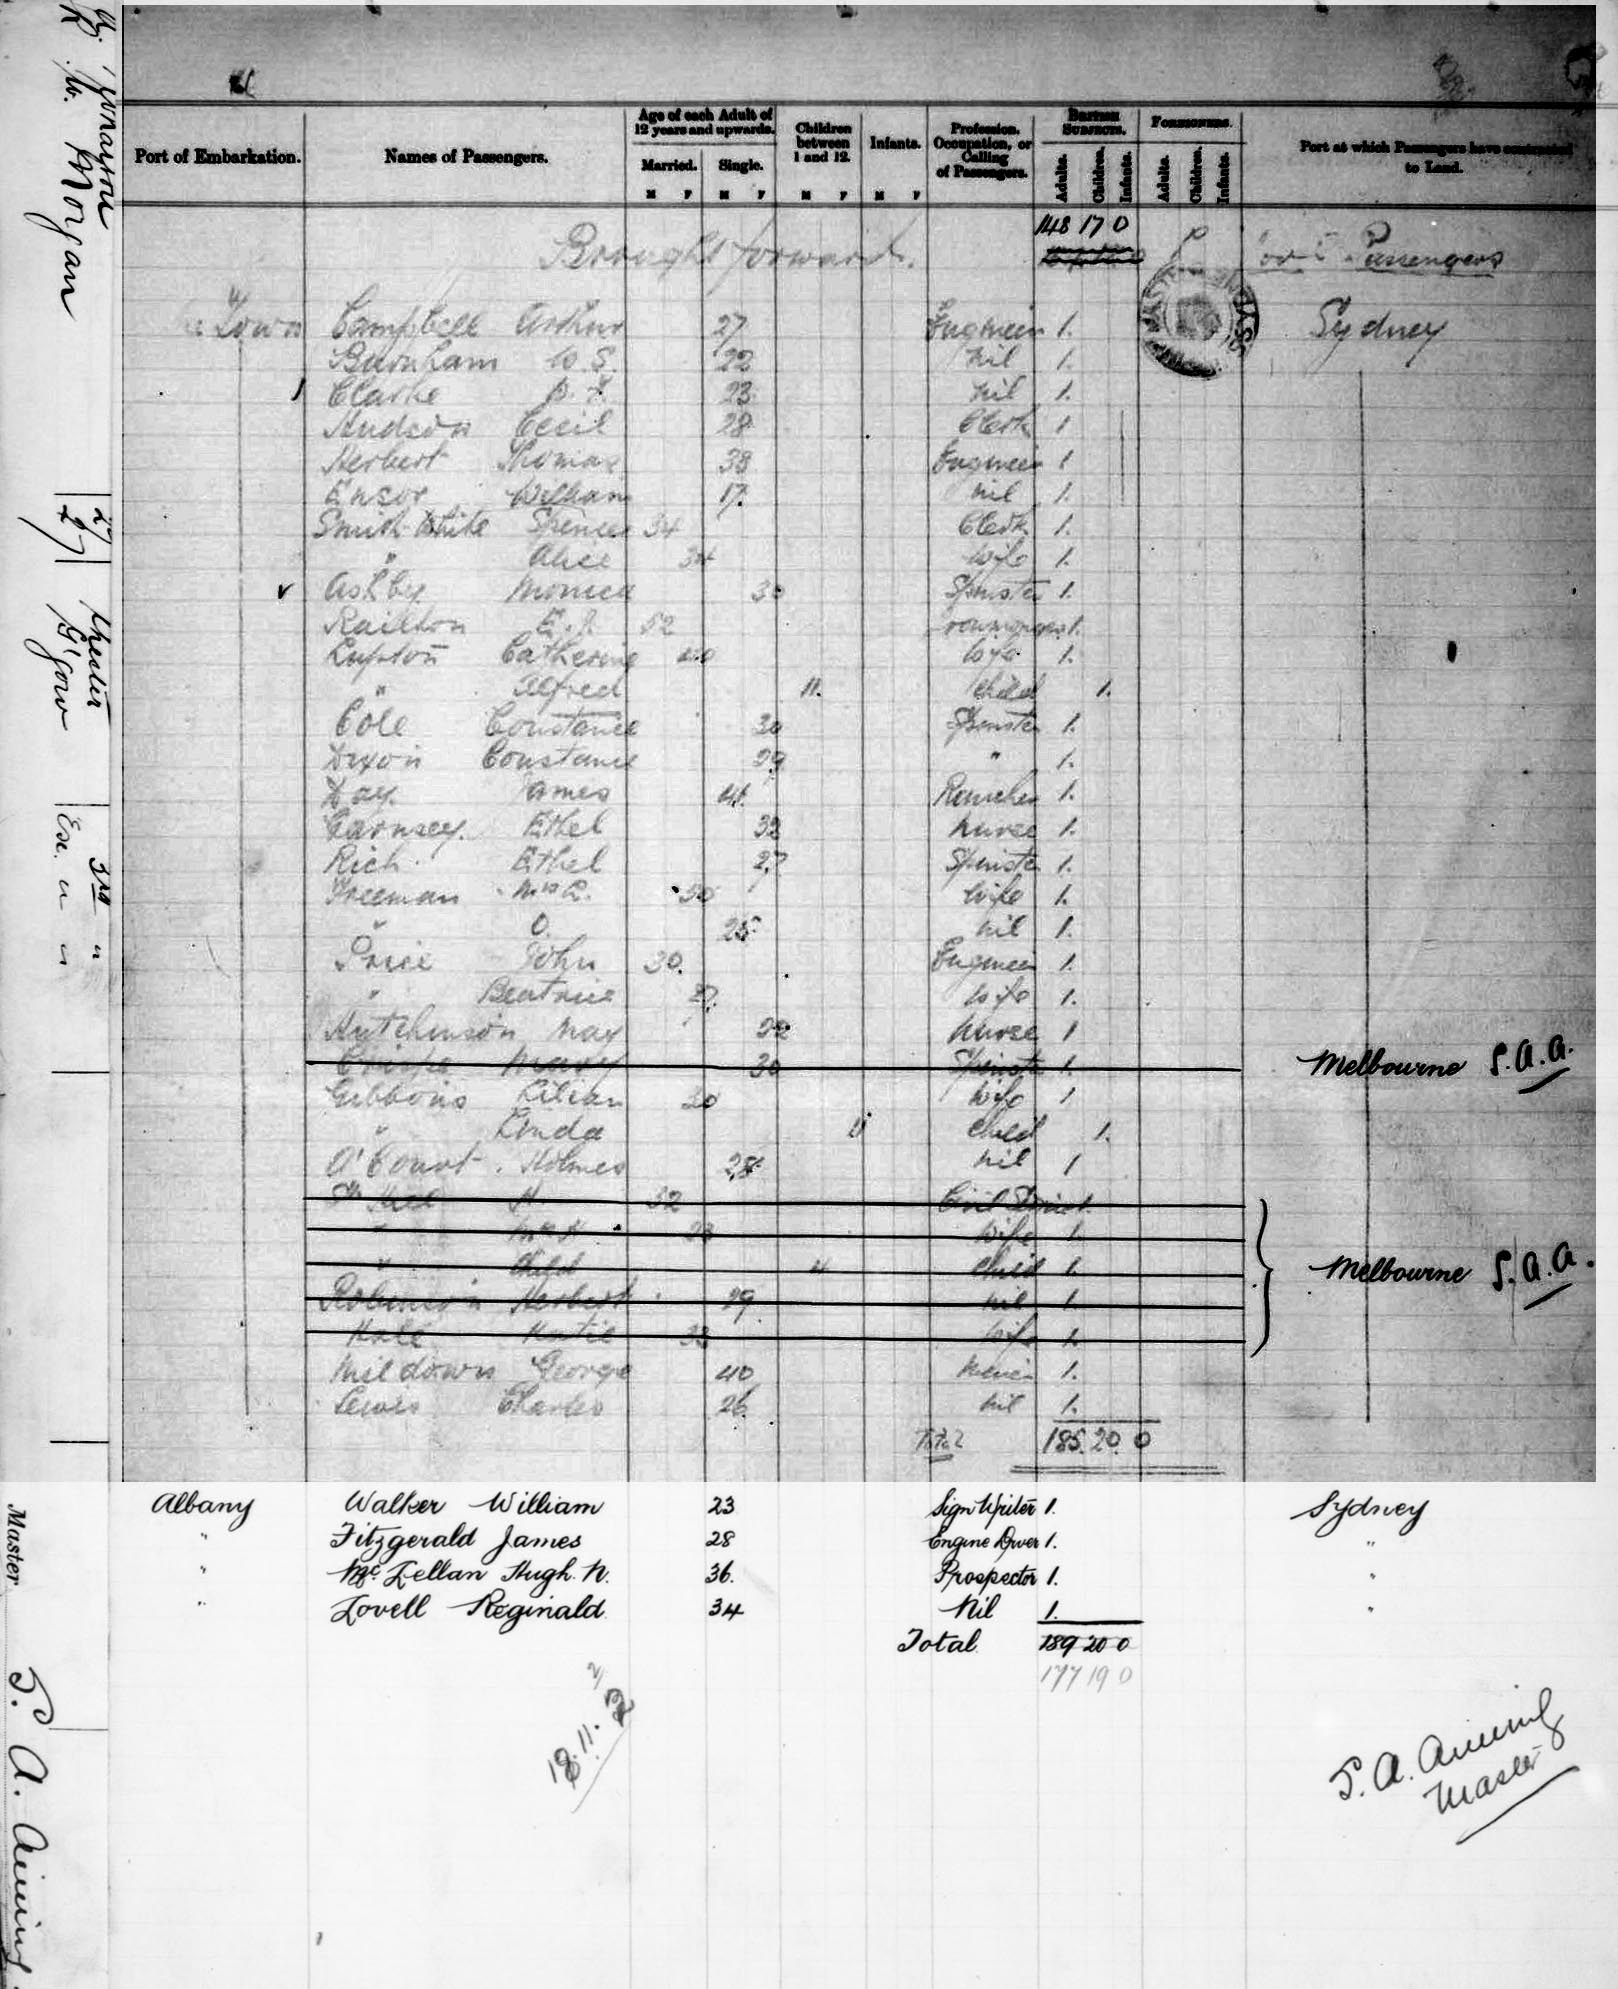 Port of Embarkation. Names of Passengers. Age of each Adult of 12 years and upwards. Married. Single. Children between 1 and 12. Infants. Profession, Occupation, or Calling of Passengers. British Subjects. Foreigners. Port at which Passengers have contracted to Land.
M F M F M F M F Adults. Children. Infants. Adults. Children. Infants.
148 17 0
Brought forward. Passengers
Town Campbell Arthur 27 Engineer 1. Sydney
Burnham W. S. 22 Nil 1.
Clarke 23 Nil 1.
Hudson Cecil 28 Clerk 1
Herbert Thomas 38 Engineer 1
Ensor William 17. Nil 1.
Smith White Spencer 34 Clerk 1.
" Alice 34 Wife 1.
Ashby Monica 30 Spinster 1.
Railton E. J. 52 1.
Lupton Catherine 40 Wife 1.
" Alfred 11. Child 1.
Cole Constance 30 Spinster 1.
Dixon Constance 29 " 1.
Day. James 41. Rancher 1.
Garnsey. Ethel 32 Nurse 1.
Rich Ethel 27 Spinster 1.
Freeman Mrs R. 50 Wife 1.
" O. 25 Nil 1.
Price John 30. Engineer 1.
" Beatrice 27. Wife 1.
Hutchinson May 22 Nurse 1
Mary 30 Spinster 1. Melbourne T.A.A.
Gibbons Lilian 30 Wife 1
" Linda Child 1.
A'Court. Holmes 28 Nil 1
H 32 Civil Servant 1.
" Mrs H. 23 Wife 1.
" Child 4 Child 1. Melbourne T.A.A.
Robinson Herbert 29 Nil 1.
Hall Katie 33 Wife 1.
Mildown George 40 Miner 1.
Lewis Charles 26 Nil 1.
Total 185 20. 0
Albany Walker William 23 Sign Writer 1. Sydney
" Fitzgerald James 28 Engine Driver 1. "
" McLellan Hugh. N. 36. Prospector 1. "
" Lovell Reginald 34 Nil 1. "
Total 189 20 0
177 19 0
18.11.
T. A. Aining
Master
Morgan
27
Chester
G'gow
3rd "
Ese. " "
Master. T. A. Aining